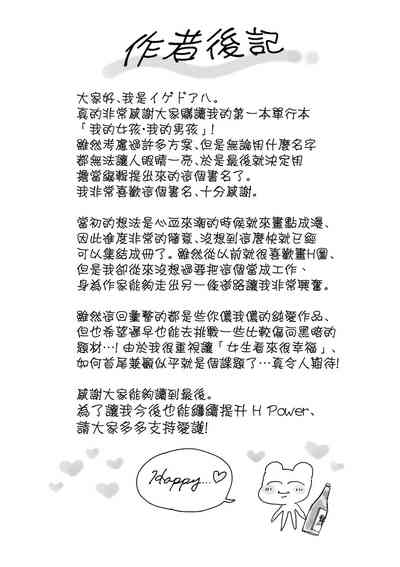 作者後記
大家好、我是イゲドアハ。
真的非常感謝大家購讀我的第一本單行本
「我的女孩·我的男孩」!
雖然考慮過許多方案、但是無論用什麼名字
都無法讓人眼睛一亮、於是最後就決定用
擔當編輯提出來的這個書名了。
我非常喜歡這個書名、十分感謝。
當初的想法是心血來潮的時候就來畫點成漫、
因此進度非常的隨意、沒想到這麼快就已經
可以集結成冊了。雖然從以前就很喜歡畫H圖、
但是我卻從來沒想過要把這個當成工作、
身為作家能夠走出另一條道路讓我非常興奮。
雖然這回畫的都是些你儂我儂的純愛作品、
但也希望學也能去挑戰一些比較偏向黑暗的
題材…!由於我很重視讓「女生看來很幸福」、
如何首尾兼顧似乎就是個課題了…真令人期待!
感謝大家能夠讀到最後。
為了讓我今後也能繼續提升 H Power、
請大家多多支持愛護!
Happy...♡